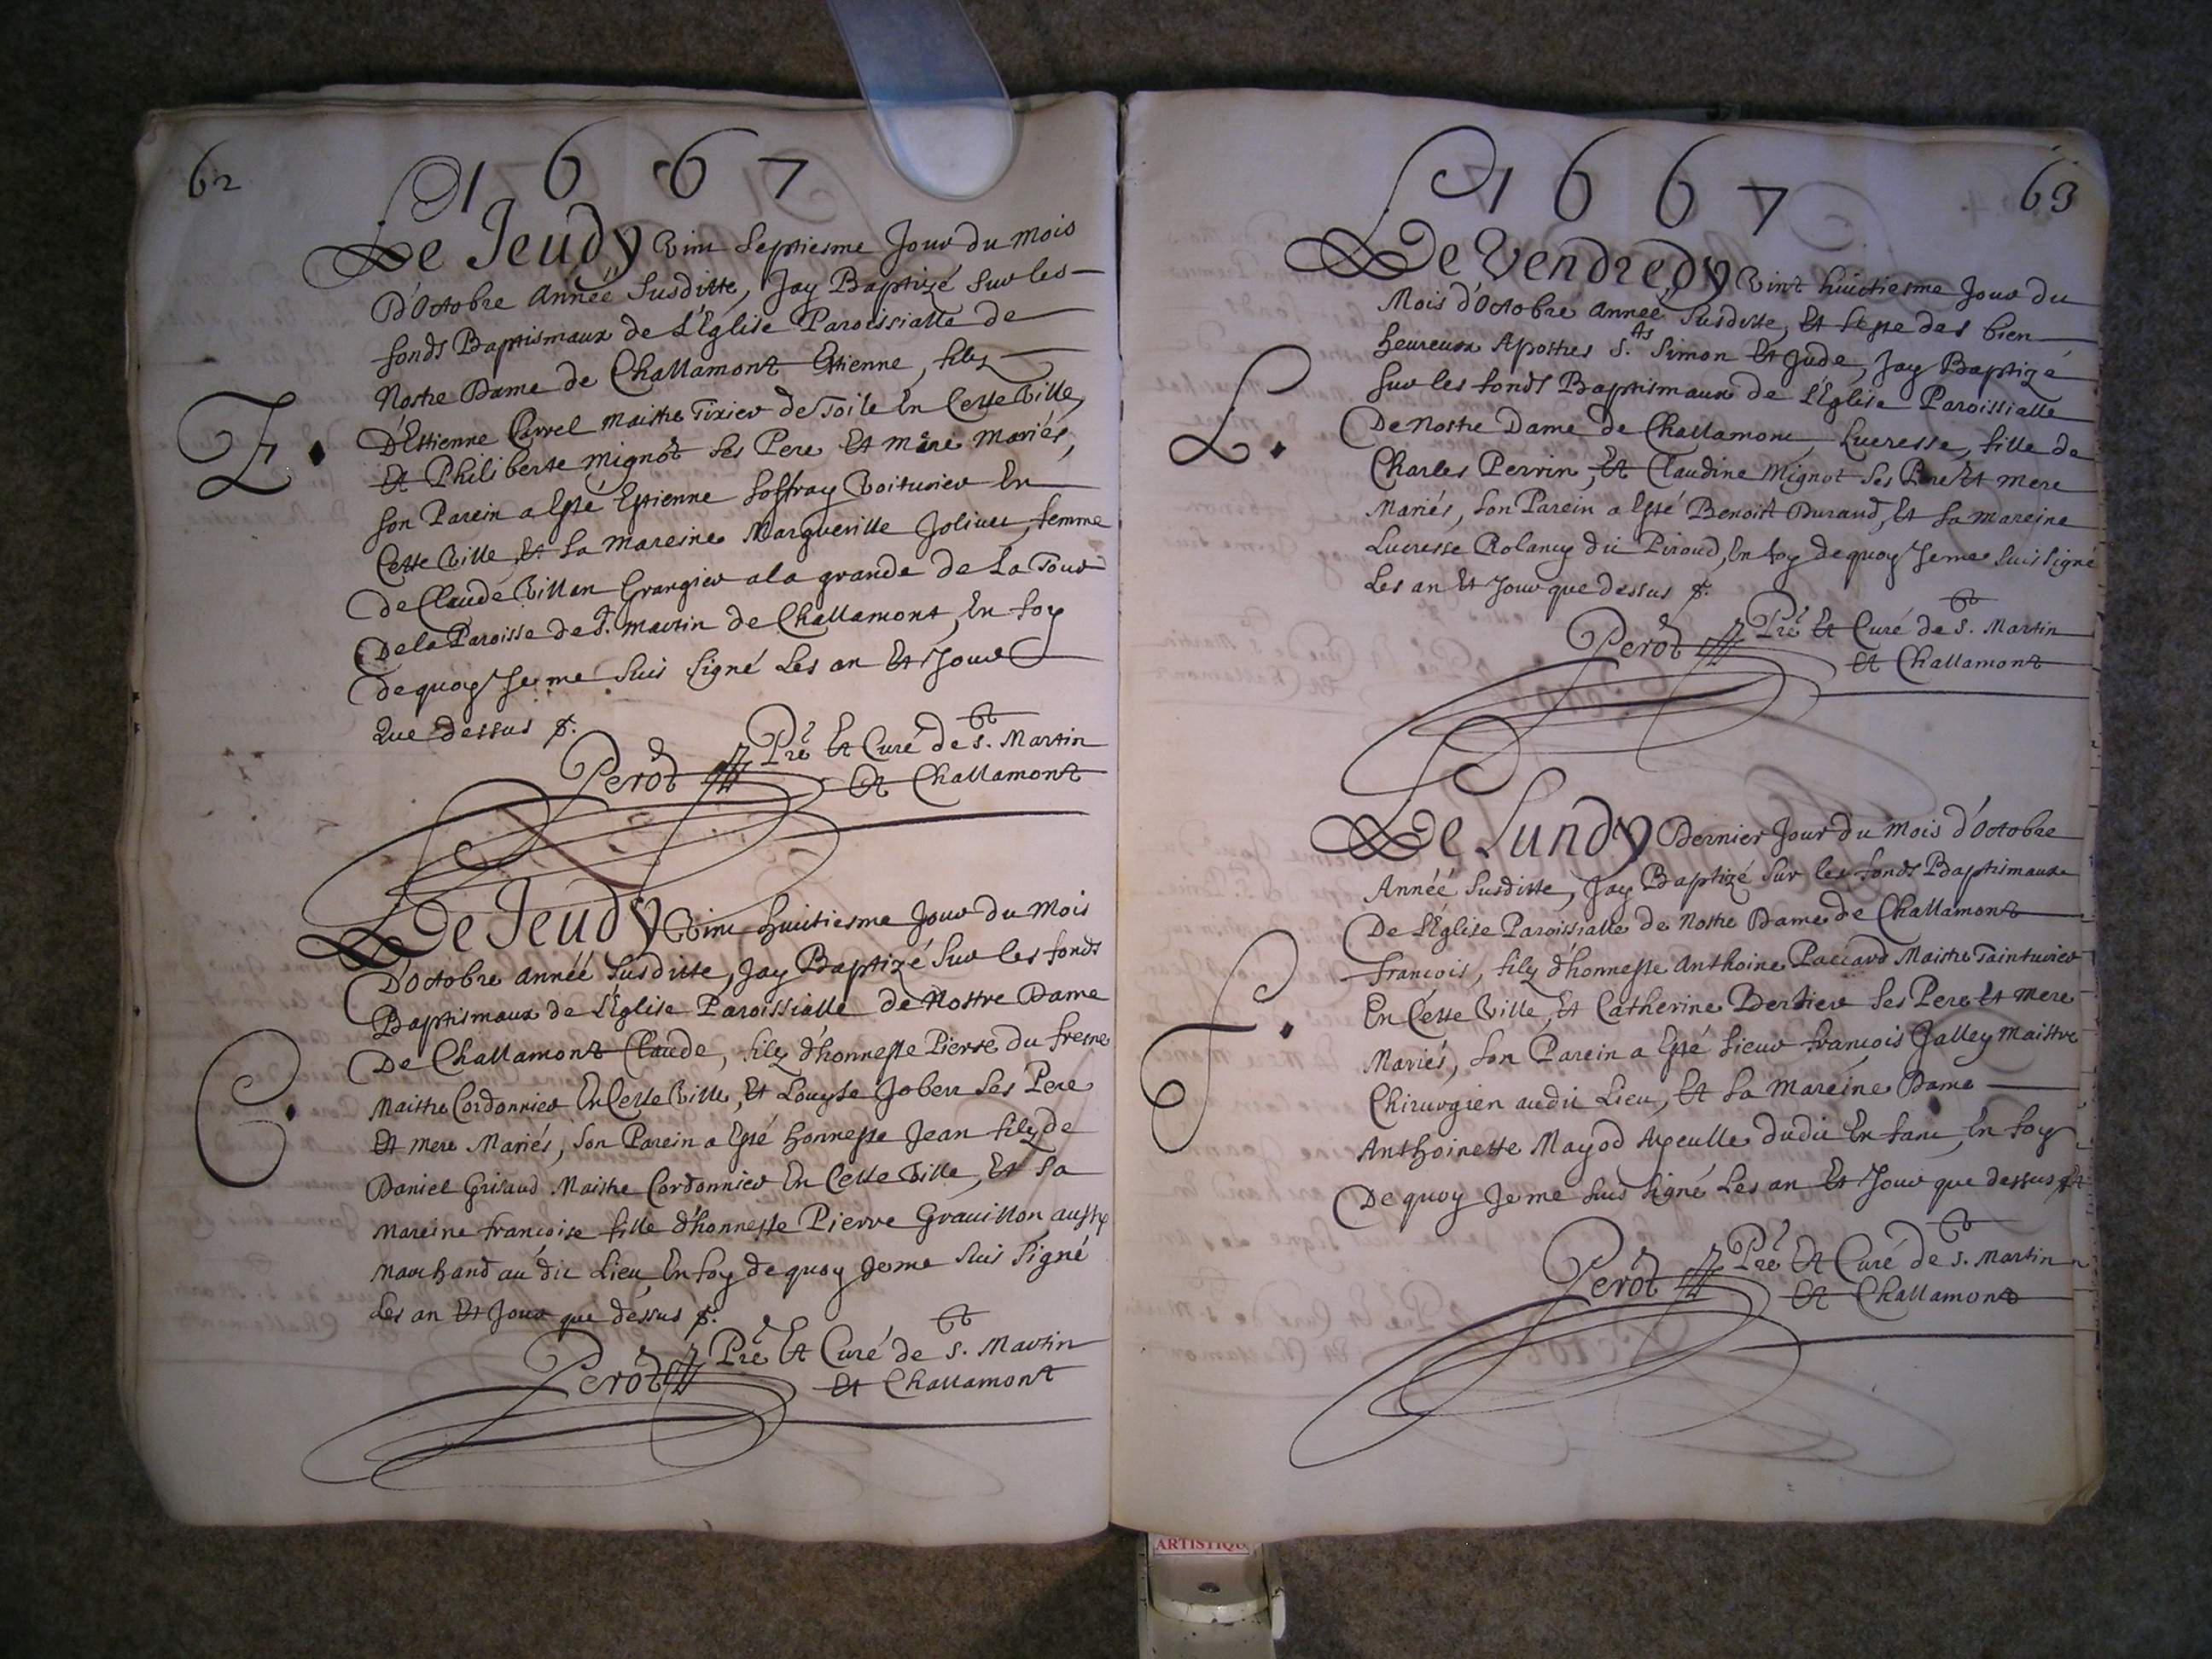 62
1667
Le Jeudy Vint Septiesme Jour du Mois
D'Octobre Année Susditte, Jay Baptizé Sur les
fonds Baptismaux de L'Eglise Paroissialle de
Nostre Dame de Challamont Estienne, filz
E.
D'Estienne Carrel Maitre Tixier de Toile En Cette Ville,
Et Philiberte Mignot Ses Pere Et Mere Mariés,
Son Parein a Esté Estienne Soffray Voiturier En
Cette Ville Et Sa Mareine Margueritte Jolivet, femme
de Claude Villan Grangier a la grande de La Tour
De la Paroisse de St. Martin de Challamont, En foy
dequoy Je me Suis Signé Les an Et Jour
Que dessus
Perot Pre Et Curé de S. Martin
Et Challamont
Le Jeudy Vint huitiesme Jour du Mois
D'Octobre Année Susditte, Jay Baptizé Sur les fonds
Baptismaux de L'Eglise Paroissialle de Nostre Dame
De Challamont Claude, filz d'honneste Pierre du fresne
C.
Maitre Cordonnier En Cette Ville, Et Louyse Jobert Ses Pere
Et Mere Mariés, Son Parein a Esté honneste Jean filz de
Daniel Grisaud Maitre Cordonnier En Cette Ville, Et Sa
Mareine francoise fille d'honneste Pierre Gravillon aussy
Marchand au dit Lieu, En foy de quoy Je me Suis Signé
Les an Et Jour que dessus
Perot Pre Et Curé de S. Martin
Et Challamont
1667
63
Le Vendredy Vint huictiesme Jour du
Mois d'Octobre Année Susditte, Et feste des bien
heureux Apostres S.ts Simon Et Jude, Jay Baptizé
Sur les fonds Baptismaux de L'Eglise Paroissialle
L.
De Nostre Dame de Challamont Lucresse, fille de
Charles Perrin, Et Claudine Mignot Ses Pere Et Mere
Mariés, Son Parein a Esté Benoist Durand, Et Sa Mareine
Lucresse Rolancy dit Piroud, En foy dequoy Je me Suis Signé
Les an Et Jour que dessus
Perot Pre Et Curé de S. Martin
Et Challamont
Le Lundy Dernier Jour du Mois d'Octobre
Année Susditte, Jay Baptizé Sur les fonds Baptismaux
De L'Eglise Paroissialle de Nostre Dame de Challamont
francois, filz d'honneste Anthoine Paccard Maistre Tainturier
F.
En Cette Ville, Et Catherine Berdiere Ses Pere Et Mere
Mariés, Son Parein a Esté Sieur francois Jalley Maistre
Chirurgien audit Lieu, Et Sa Mareine Dame
Anthoinette Mayod Ayeulle dudit Enfant, En foy
De quoy Je me Suis Signé Les an Et Jour que dessus
Perot Pre Et Curé de S. Martin
Et Challamont
ARTISTIQU